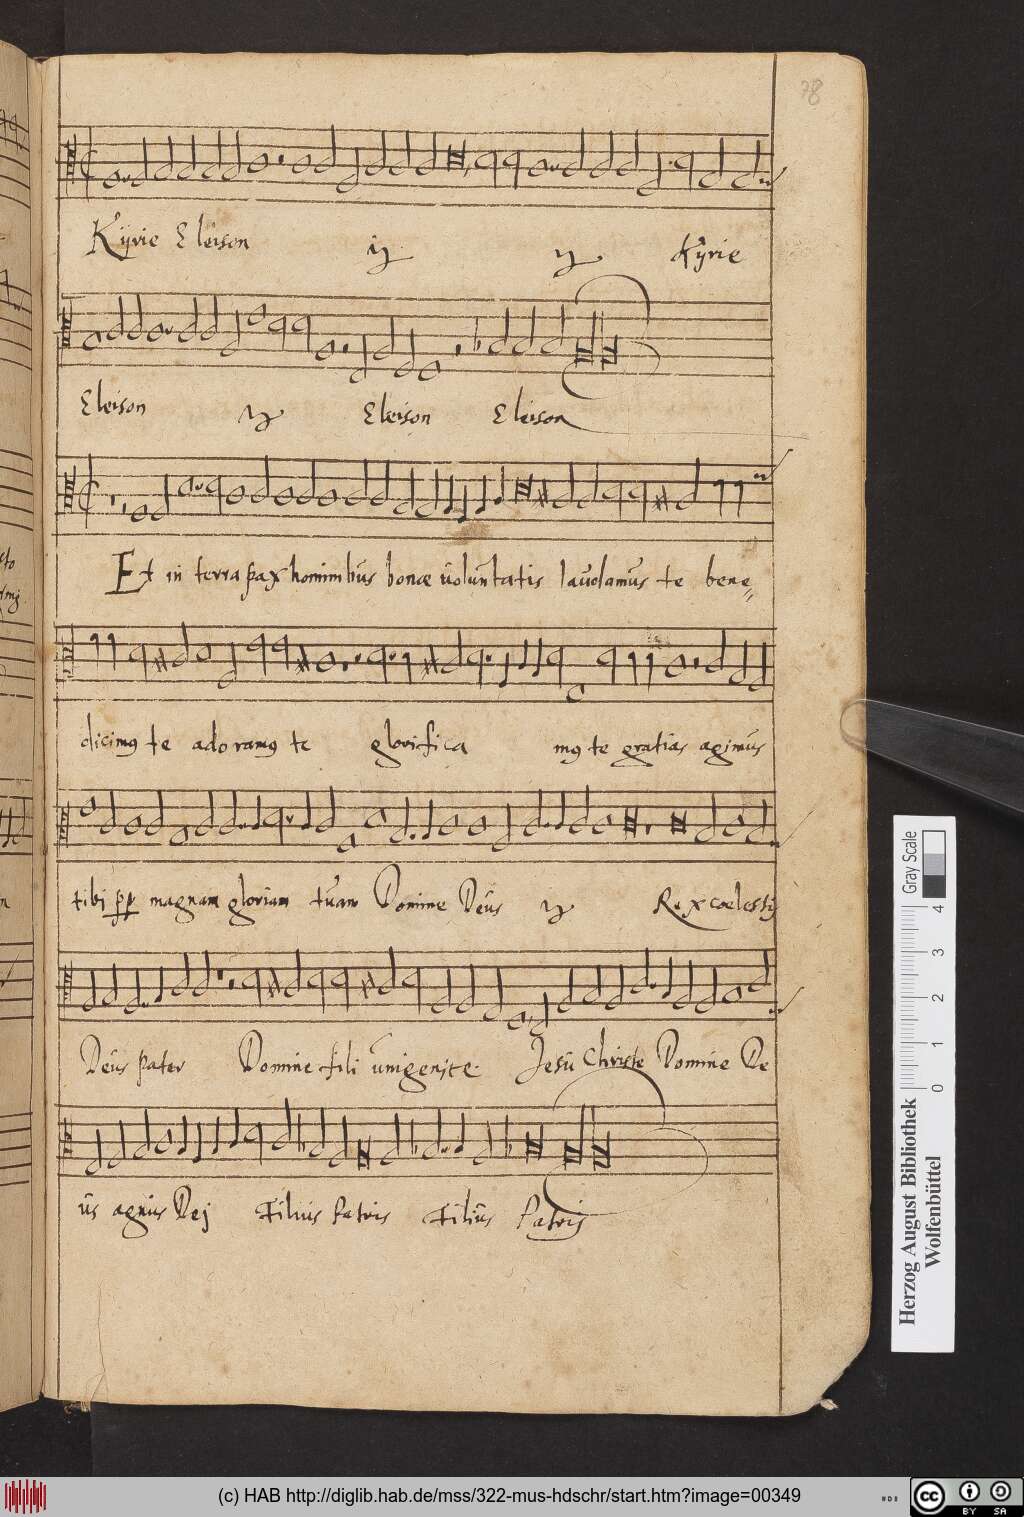 78
Kijrie Eleison ij ij Kyrie
Eleison ij Eleison Eleison
Et in terra pax hominibus bonæ voluntatis laudamus te bene
dicimꝰ te adoramꝰ te glorifica mꝰ te gratias agimus
tibi magnam gloriam tuam Domine Deus ij Rex coelestis
Deus pater Domine fili unigenite Jesu Christe Domine De
us agnus Dej Filius Patris Filius Patris
Gray Scale
0 1 2 3 4
Herzog August Bibliothek
Wolfenbüttel
(c) HAB http://diglib.hab.de/mss/322-mus-hdschr/start.htm?image=00349
cc BY SA